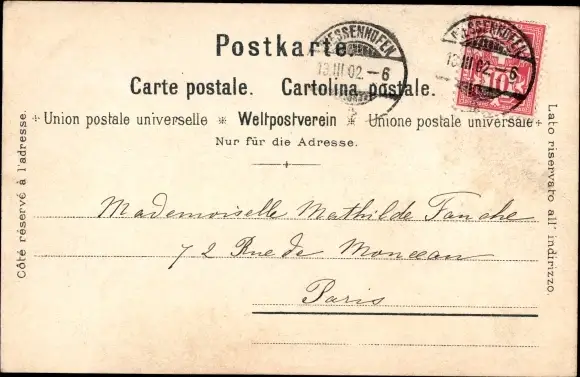 Postkarte.
DIESSENHOFEN
13.III.02.-6
DIESSENHOFEN
13.III.02.-6
10
Carte postale. Cartolina postale.
Union postale universelle * Weltpostverein * Unione postale universale
Nur für die Adresse.
Côté réservé à l'adresse.
Lato riservato all' indirizzo.
Mademoiselle Mathilde Fanche
72 Rue de Monceau
Paris